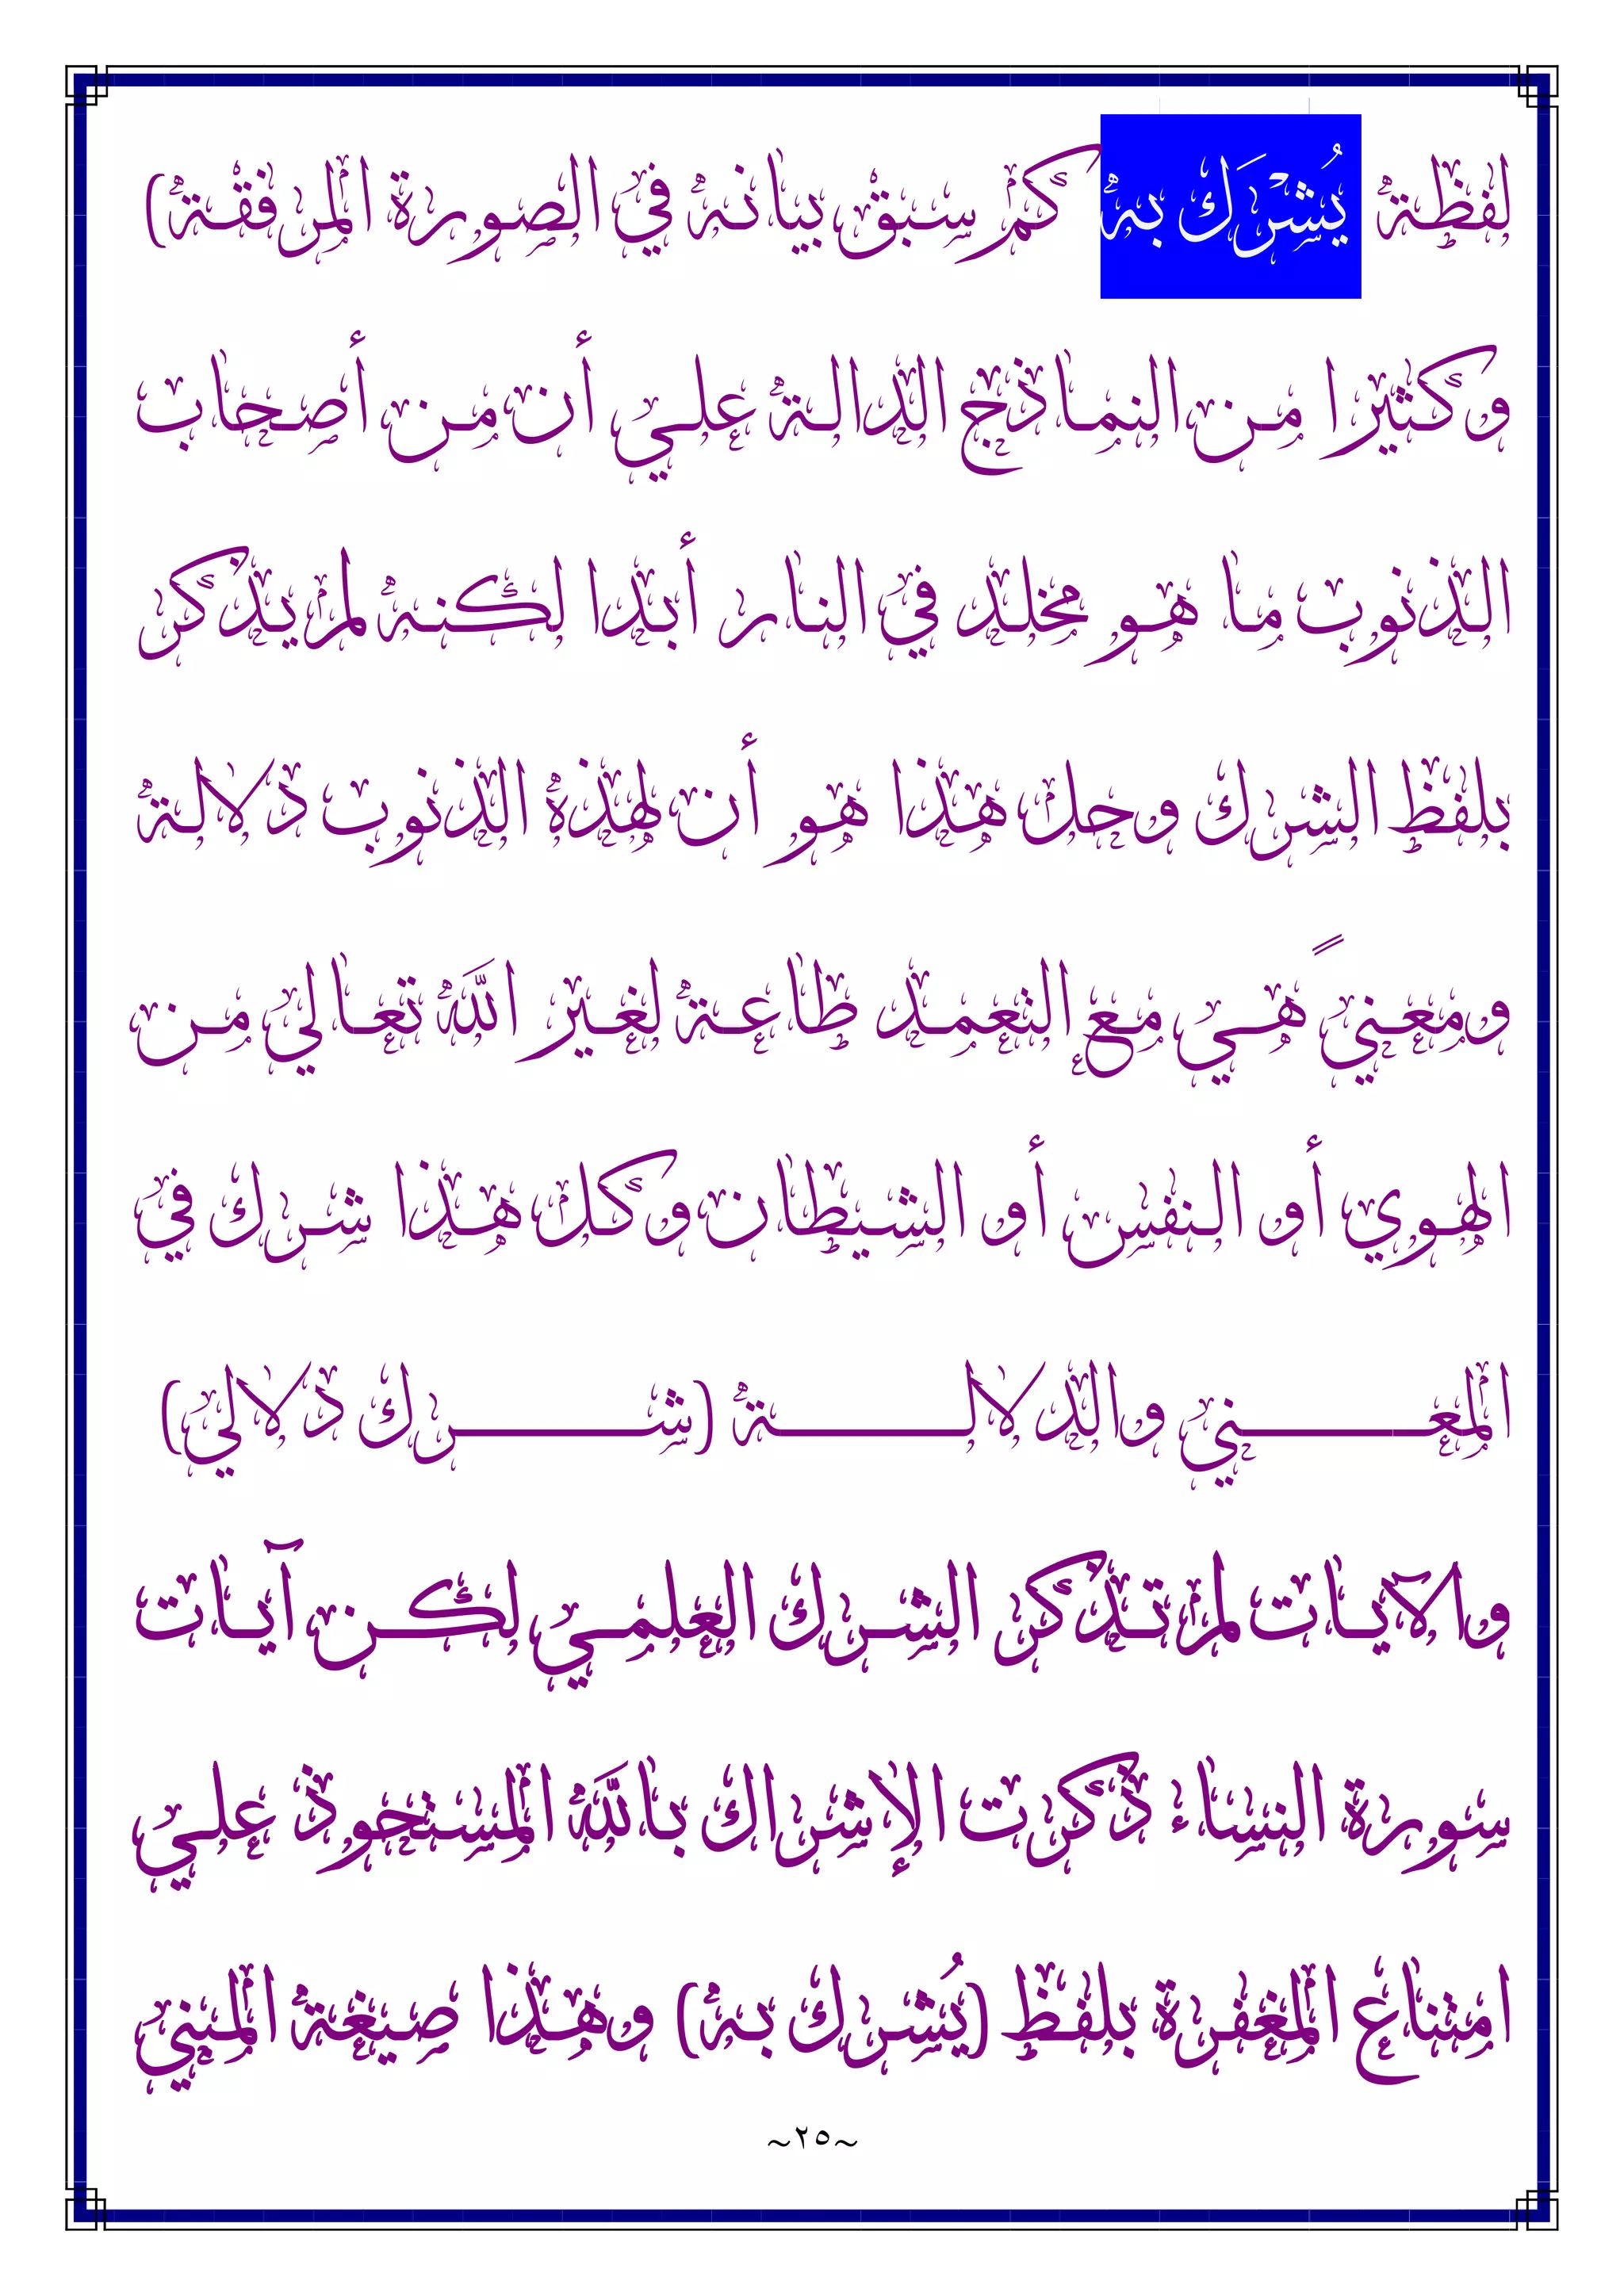 لفظة يُشْرَكَ به كم سبق بيانه في الصورة المرفقة)
وكثيرا من النماذج الدالة علي أن من أصحاب
الذنوب ما هو مخلد في النار أبدا لكنه لم يذكر
بلفظ الشرك وحل هذا هو أن لهذه الذنوب دلالة
ومعنيً هي مع إلتعمد طاعة لغير الله تعالي من
الهوي أو النفس أو الشيطان وكل هذا شرك في
المعني والدلالة (شرك دلالي)
والآيات لم تذكر الشرك العلمي لكن آيات
سورة النساء ذكرت الإشراك بالله المستحوذ علي
امتناع المغفرة بلفظ (يُشرك به) وهذا صيغة المبني
~٢٥~